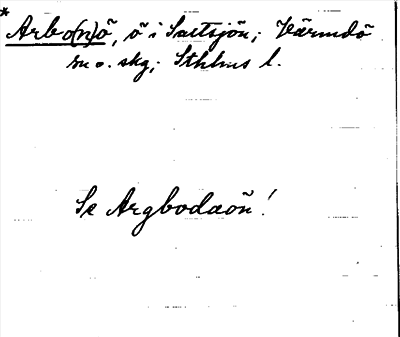 * Arbo(n)ö, ö i Saltsjön; Värmdö
sn o. skg; Sthlms l.
Se Argbodaön!